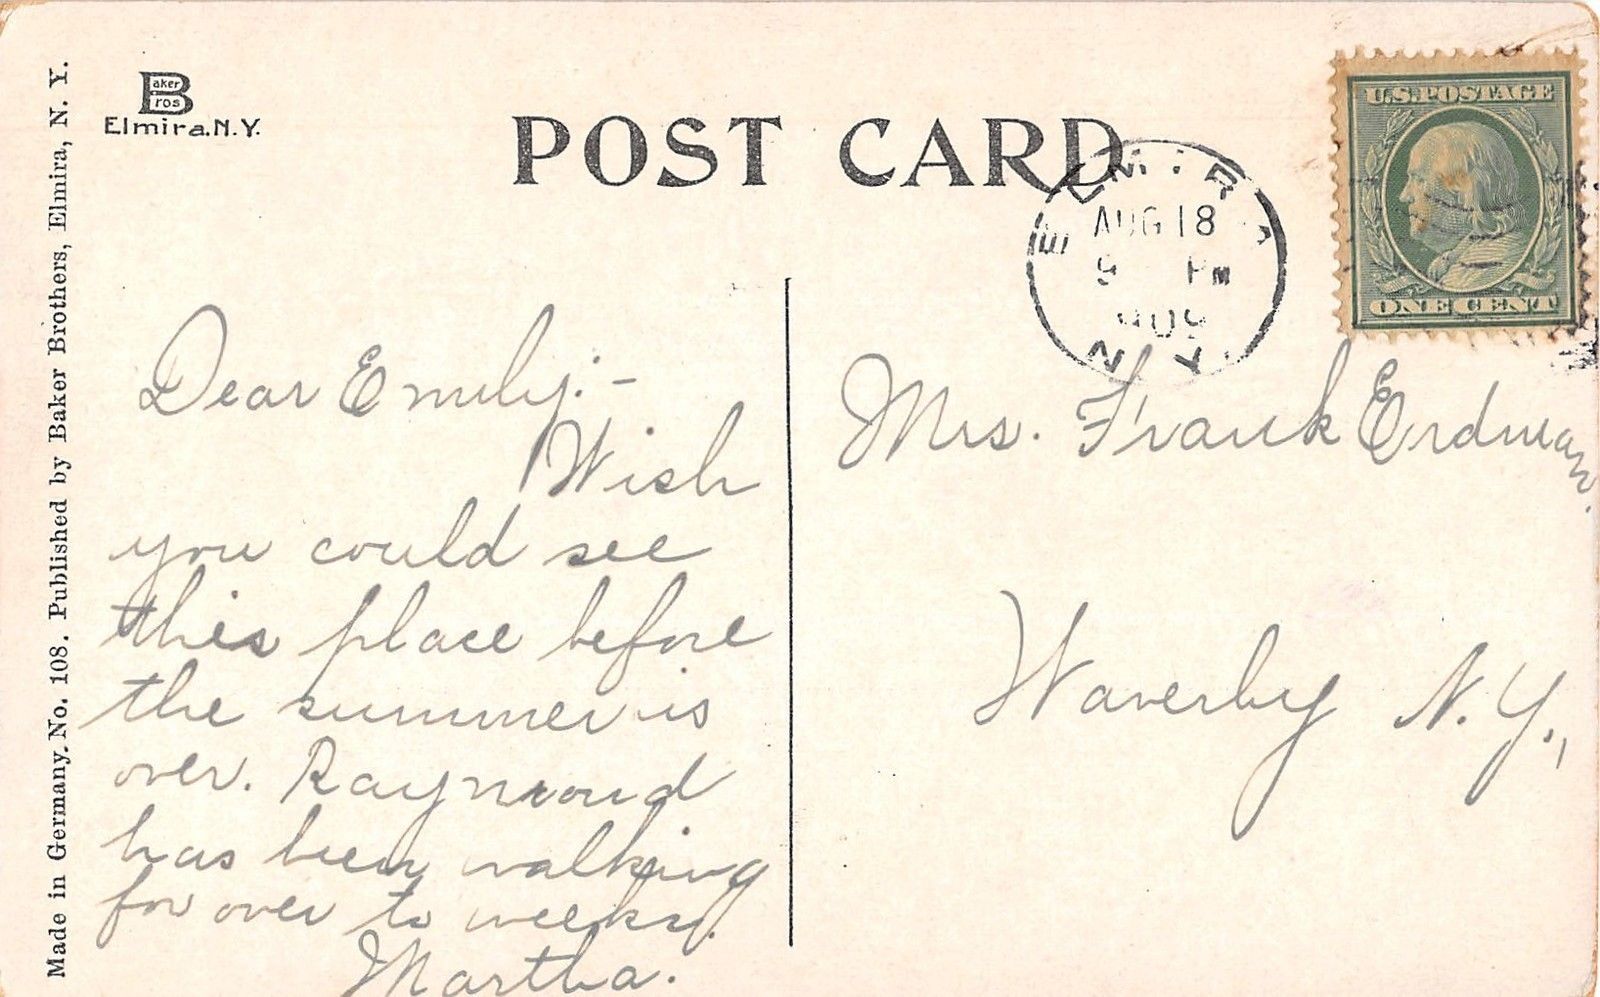 Baker
Bros
Elmira, N.Y.
POST CARD
Made in Germany. No. 108. Published by Baker Brothers, Elmira, N. Y.
ELMIRA
AUG 18
9 PM
1909
N.Y.
U.S. POSTAGE
ONE CENT
Dear Emily:-
Wish
you could see
this place before
the summer is
over. Raymond
has been walking
for over to weeks.
Martha.
Mrs. Frank Erdman.
Waverly N.Y.,